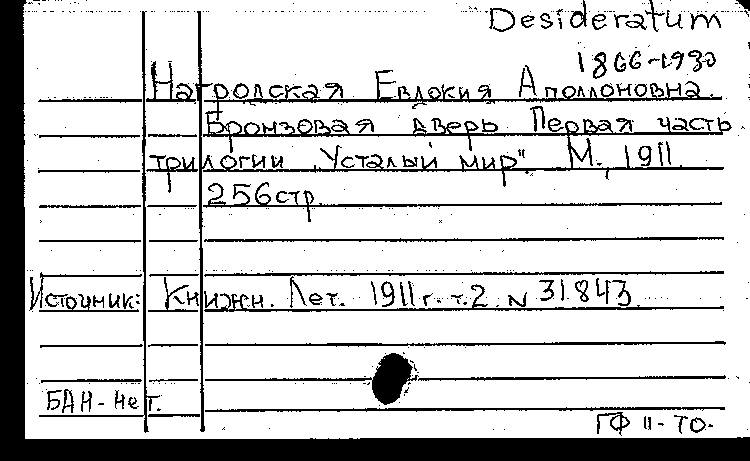 Desideratum
1866-1930
Нагродская Евдокия Аполлоновна.
Бронзовая дверь Первая часть
трилогии "Усталый мир". М., 1911.
256стр.
Источник: Книжн. Лет. 1911г. т.2 N 31843.
БАН - нет.
ГФ II - ТО.